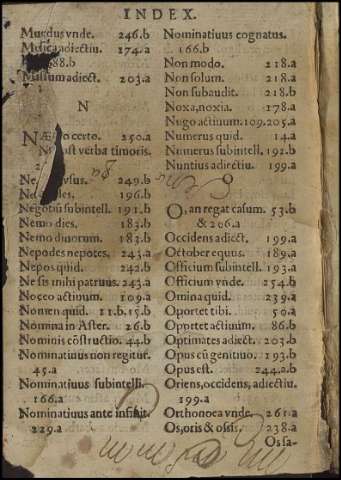 INDEX.
Mundus vnde. 246.b
Musica adiectiu. 174.a
88.b
Mussum adiect. 203.a
N
certo. 250.a
post verba timoris.
249.b
196.b
Negotiũ subintell. 191.b
Nemo dies. 183.b
Nemo diuorum. 183.b
Nepodes nepotes. 243.a
Nepos quid. 242.b
Ne sis mihi patruus. 243.a
Noceo actiuum. 109.a
Nomen quid. 11.b.15.b
Nomina in Aster. 26.b
Nominis cõstructio. 44.b
Nominatiuus non regitur.
45.a
Nominatiuus subintelli.
166.a
Nominatiuus ante infinit.
229.a
Nominatiuus cognatus.
166.b
Non modo. 218.a
Non solum. 218.a
Non subaudit. 218.b
Noxa, noxia. 178.a
Nugo actiuum. 109.205.a
Numerus quid. 14.a
Numerus subintell. 192.b
Nuntius adiectiu. 199.a
O
O, an regat casum. 53.b
& 206.a
Occidens adiect. 199.a
October equus. 189.a
Officium subintell. 193.a
Officium vnde. 254.b
Omina quid. 239.a
Oportet tibi. 50.a
Oportet actiuum. 86.b
Optimates adiect. 203.b
Opus cũ genitiuo. 193.b
Opus est. 244.2.b
Oriens, occidens, adiectiu.
199.a
Orthonoca vnde. 261.a
Os, oris & ossis. 238.a
Os sa-